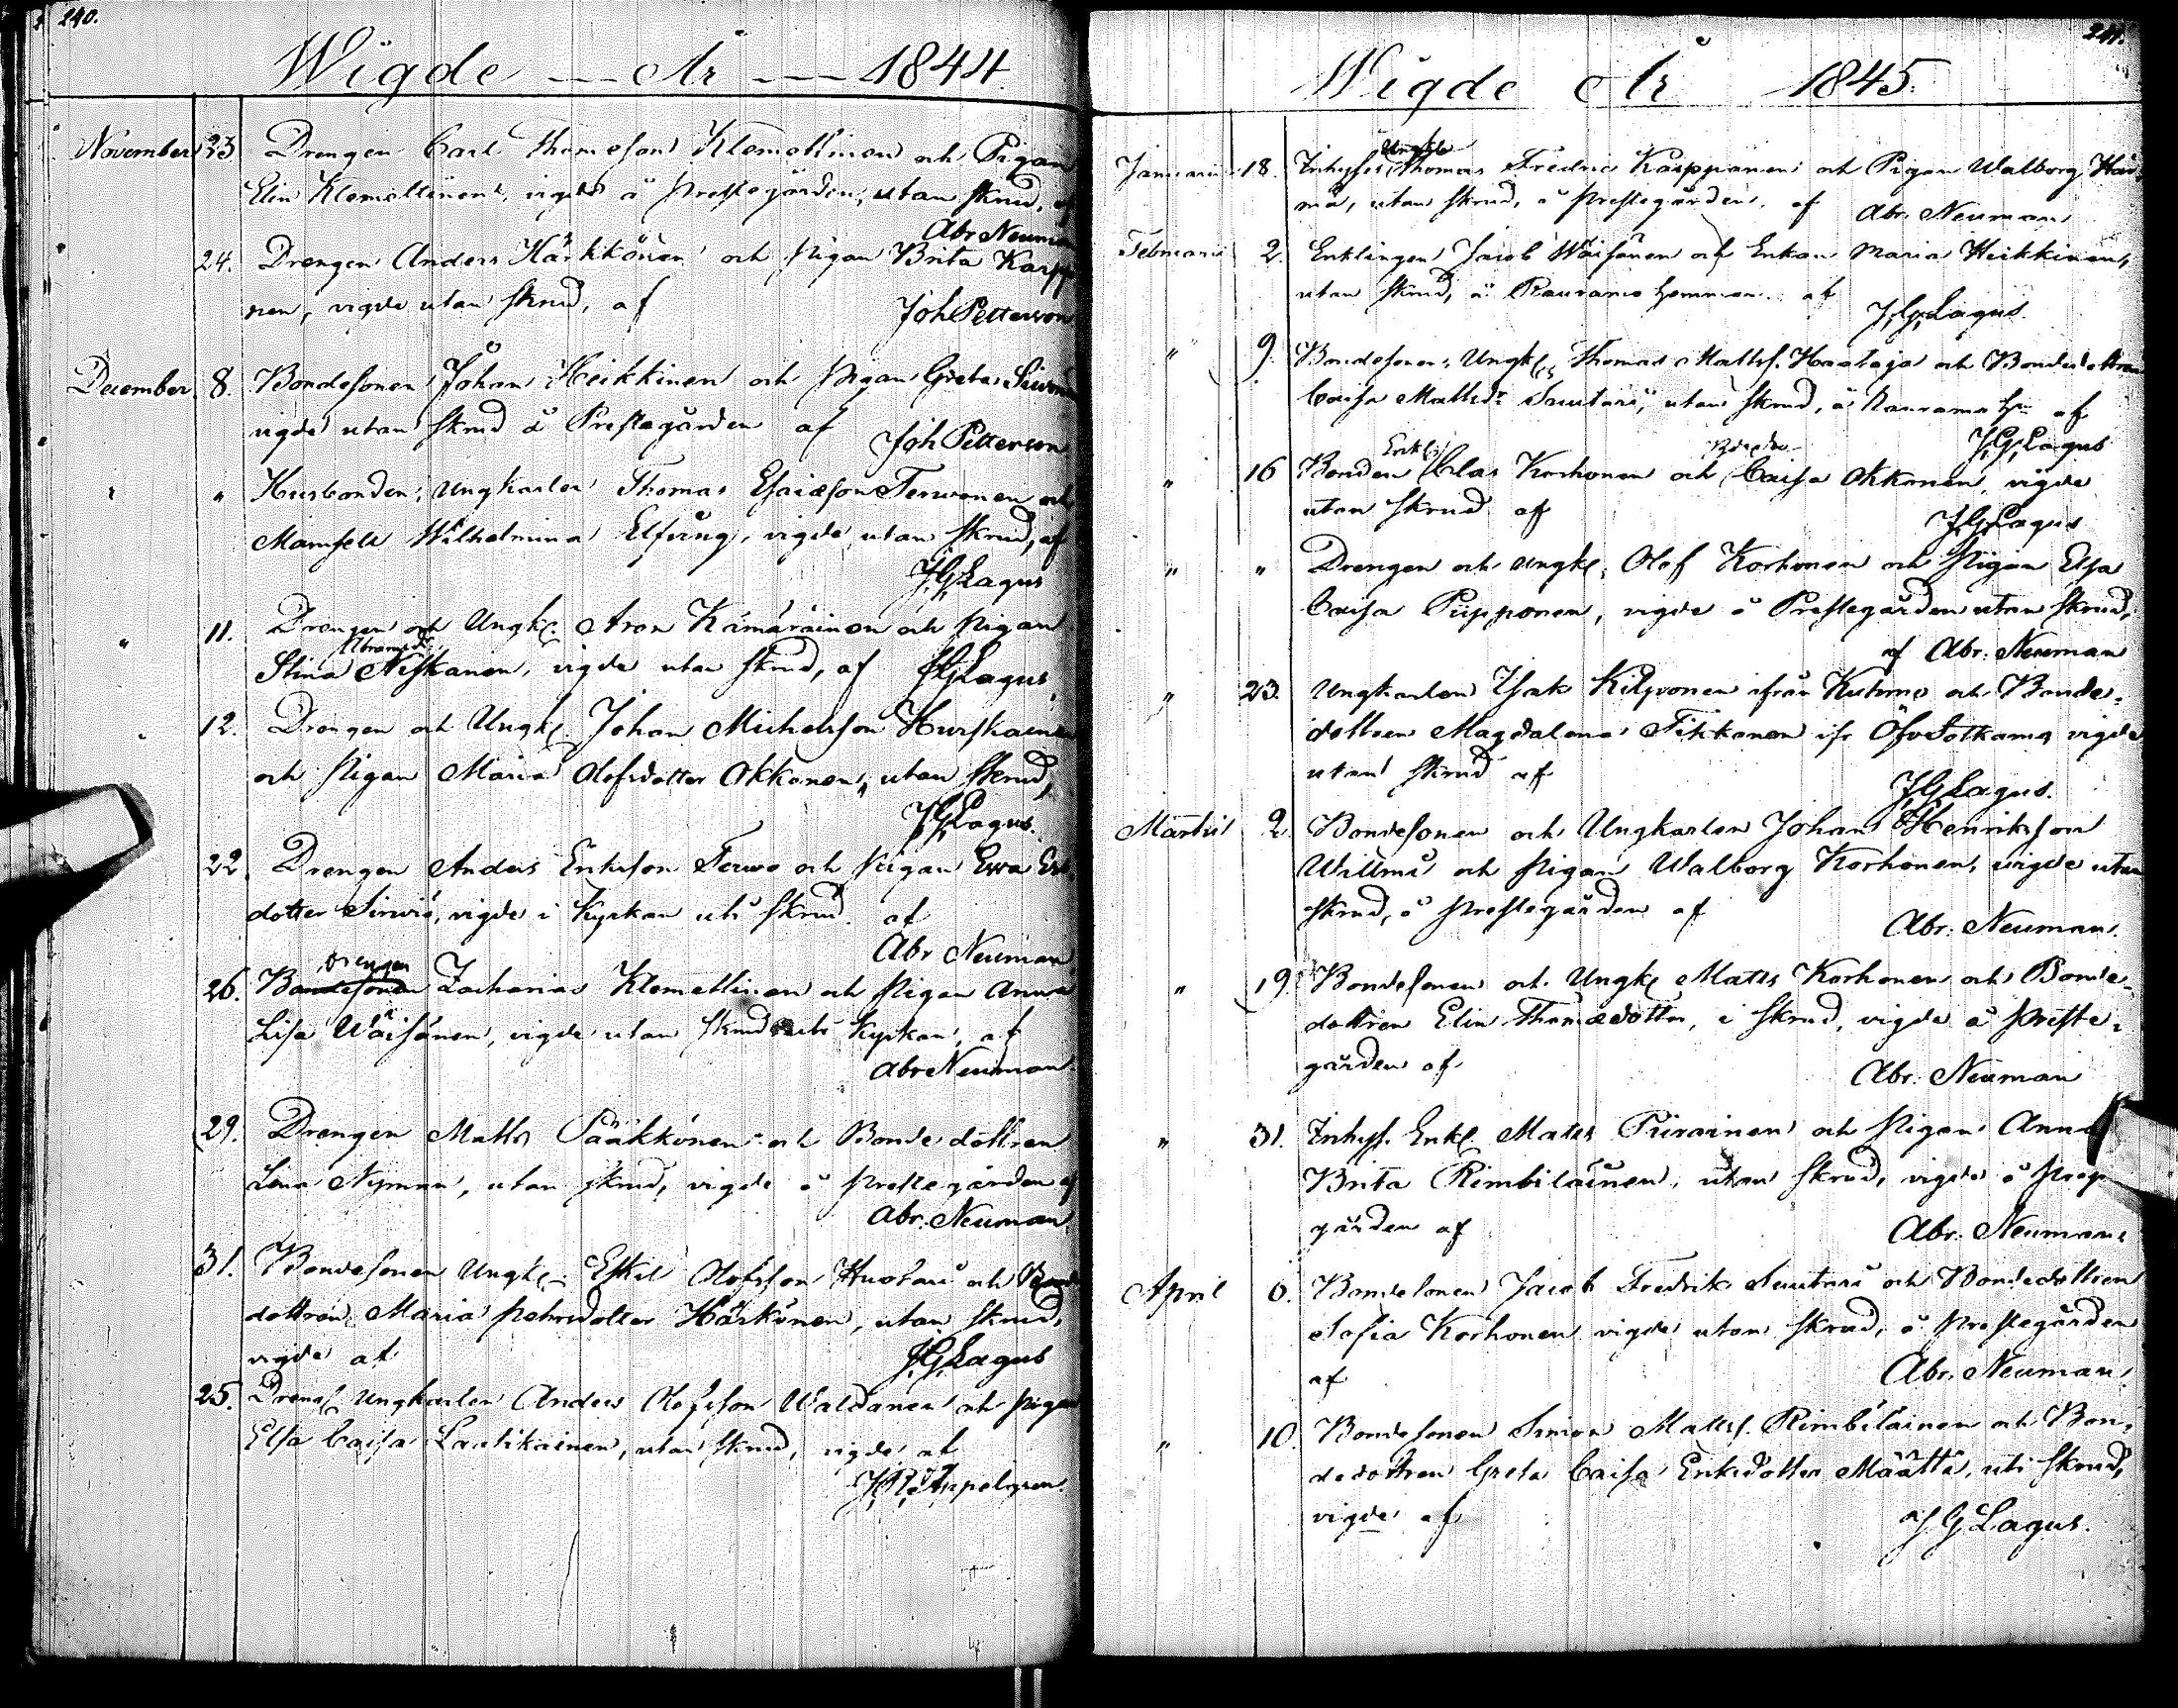 240.
Wigde — År — 1844.
November 23. Drengen Carl Thomasson Klemettinen och Pigan
Elin Klemettinen, vigde å Prestegården, utan skrud, af
Abr Neuman
24. Drengen Anders Härkkönen och Pigan Brita Karpp
nen, vigde utan skrud, af
Joh Petterson
December 8. Bondesonen Johan Heikkinen och Pigan Greta
vigde utan skrud å Prestegården af
Joh Petterson
" Husbonden, Ungkarlen Thomas Esaiæson Terwonen och
Mamsell Wilhelmina Elfving, vigde utan skrud, af
J,G,Lagus
" 11. Drengen och Ungk. Aron Kämäräinen och Pigan
Abramsdr
Stina Niskanen, vigde utan skrud, af J,G,Lagus
12. Drengen och Ungk. Johan Michelsson Hurskainen
och Pigan Maria Olofsdotter Okkonen, utan skrud,
J,G,Lagus.
22. Drengen Anders Eriksson Terwo och Pigan Ewa Er
dotter Sirwiö, vigde i Kyrkan uti skrud af
Abr Neuman
Drengen
26. Bondesonen Zacharias Klemettinen och Pigan Anna
Lisa Wäisänen, vigde utan skrud uti Kyrkan, af
Abr Neuman
29. Drengen Matts Pääkkönen och Bonde dottren
Lena Nyman, utan skrud, vigde å Prestegården af
Abr. Neuman
31. Bondesonen Ungk. Eskil Olofsson Huotari och Bonde
dottren Maria Pehrsdotter Härkönen, utan skrud,
vigde af J,G,Lagus
25. Ungkarlen Anders Olofsson Waldanen och Pigan
Elsa Caisa Lautikainen, utan skrud, vigde af
Appelgren.
241.
Wigde År 1845.
Ungk
Januarii 18. Inhyses Thomas Fredric Karppanen och Pigan Walborg Här
mä, utan skrud, å Prestegården. af Abr. Neuman
Februarii 2. Enklingen Jacob Wäisänen och Enkan Maria Heikkinen,
utan skrud, å Rauramo hemman af
J,G,Lagus.
" 9. Bondesonen, Ungk. Thomas Mattss. Haataja och Bondedottren
Caisa Mattsdr Suutari, utan skrud, å Rauramo af
J,G,Lagus
Enkl.
" 16 Bonden Clas Korhonen och Caisa Okkonen, vigde
utan skrud af
J,G,Lagus
" " Drengen och Ungk. Olof Korhonen och Pigan Elsa
Caisa Piipponen, vigde å Prestegården utan skrud,
af Abr. Neuman
" 23. Ungkarlen Isak Kilponen ifrån Kuhmo och Bonde-
dottren Magdalena Tikkanen ifr ÖfvSotkamo vigde
utan skrud af
J,G,Lagus.
Martii 2. Bondesonen och Ungkarlen Johan Henriksson
Willmi och Pigan Walborg Korhonen, vigde utan
skrud, å Prestegården af
Abr. Neuman.
" 19. Bondesonen och Ungk. Matts Korhonen och Bonde-
dottren Elin Thomædotter, i skrud, vigde å Preste-
gården af
Abr. Neuman
" 31. Inhys. Enkl. Matts Piirainen och Pigan Anna
Brita Rimbiläinen, utan skrud, vigde å
gården af Abr. Neuman
April 6. Bondesonen Jacob Fredrik Suutari och Bondedottren
Sofia Korhonen vigde utan skrud, å Prestegården
af Abr. Neuman
" 10. Bondesonen Simon Mattss. Rimbiläinen och Bon-
dedottren Greta Caisa Eriksdotter Määttä, uti skrud,
vigde af J G Lagus.